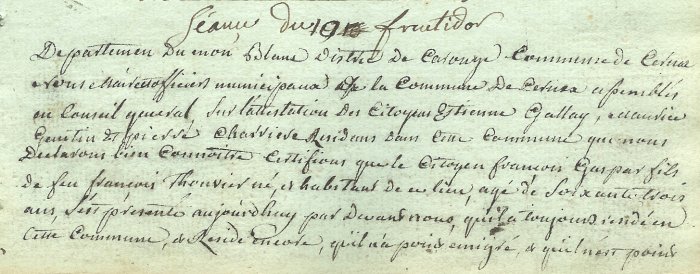 Séance du 19 fructidor
Departemen du mon Blanc District De Carouge Commune de Cernex
Nous maire et officiers municipaux de la Commune De Cernex assemblés
en Conseil general, Sur lattestation Des Citoyens Estienne Gallay, et maurice
Gentin Et pierre Charriere Residans dans Cette Commune que nous
Declarons bien Connoitre Certifions que le Citoyen francois Gaspar fils
de feu francois thouvier né, et habitant de ce lieu, agé de Soixante trois
ans, sest presenté aujourdhuy par Devant nous, quil a toujours residé en
Cette Commune, & Reside encore, quil na point emigré, & quil nest point